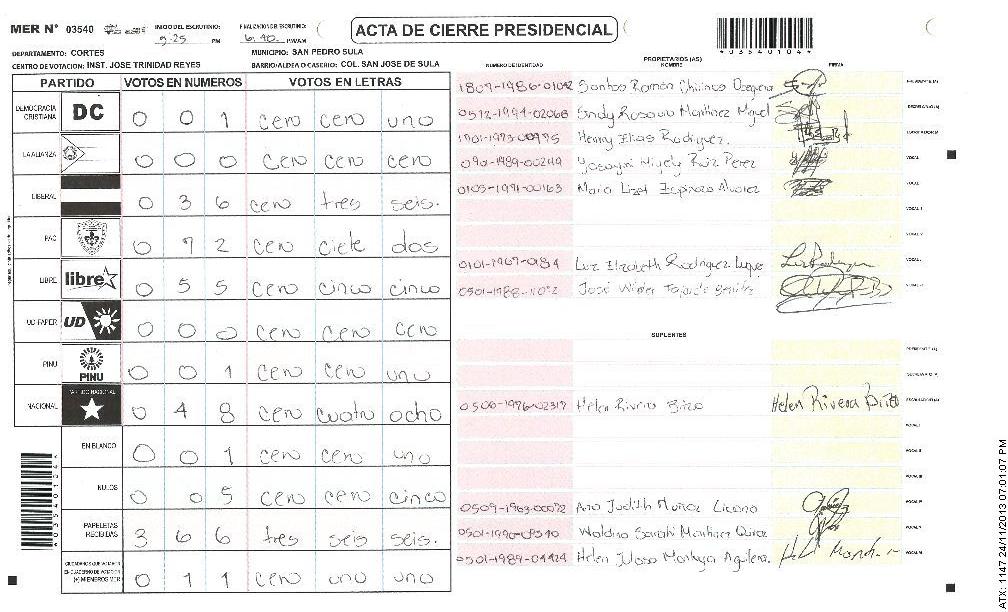 MER N° 03540 INICIO DEL ESCRUTINIO: 5:25 PM FINALIZACION DEL ESCRUTINIO: 6:40 PM/AM
ACTA DE CIERRE PRESIDENCIAL
*03540104*
DEPARTAMENTO: CORTES MUNICIPIO: SAN PEDRO SULA
CENTRO DE VOTACION: INST. JOSE TRINIDAD REYES BARRIO/ALDEA O CASERIO: COL. SAN JOSE DE SULA
PARTIDO VOTOS EN NUMEROS VOTOS EN LETRAS
DEMOCRACIA CRISTIANA DC 0 0 1 cero cero uno
LA ALIANZA 0 0 0 cero cero cero
LIBERAL 0 3 6 cero tres seis.
PAC 0 7 2 cero ciete dos
LIBRE libre 0 5 5 cero cinco cinco
UD-FAPER UD 0 0 0 cero cero cero
PINU PINU 0 0 1 cero cero uno
NACIONAL PARTIDO NACIONAL 0 4 8 cero cuatro ocho
EN BLANCO 0 0 1 cero cero uno
NULOS 0 0 5 cero cero cinco
PAPELETAS RECIBIDAS 3 6 6 tres seis seis.
CIUDADANOS QUE VOTARON EN CUADERNO DE VOTACION (+) MIEMBROS MER 0 1 1 cero uno uno
PROPIETARIOS (AS)
NUMERO DE IDENTIDAD NOMBRE FIRMA
Santos Ramon PRESIDENTE (A)
0512-1994-02068 Sindy Rosario Martinez Miguel SECRETARIO (A)
Henry Elias Rodriguez. ESCRUTADOR (A)
Ruiz Perez VOCAL
0105-1991-00163 Maria Lizet Espinoza Alvarez VOCAL
VOCAL
VOCAL
Luz Elizabeth Rodriguez Luque VOCAL
José VOCAL
SUPLENTES
PRESIDENTE (A)
SECRETARIO (A)
0506-1976-02317 Helen Rivera Brizo Helen Rivera ESCRUTADOR (A)
VOCAL I
VOCAL II
VOCAL III
0509-1963-00072 Ana Judith Muñoz VOCAL IV
Sarahi Martinez VOCAL V
0501-1989-04424 Helen Montoya Aguilera. VOCAL VI
*03540104*
ATX: 1147 24/11/2013 07:01:07 PM